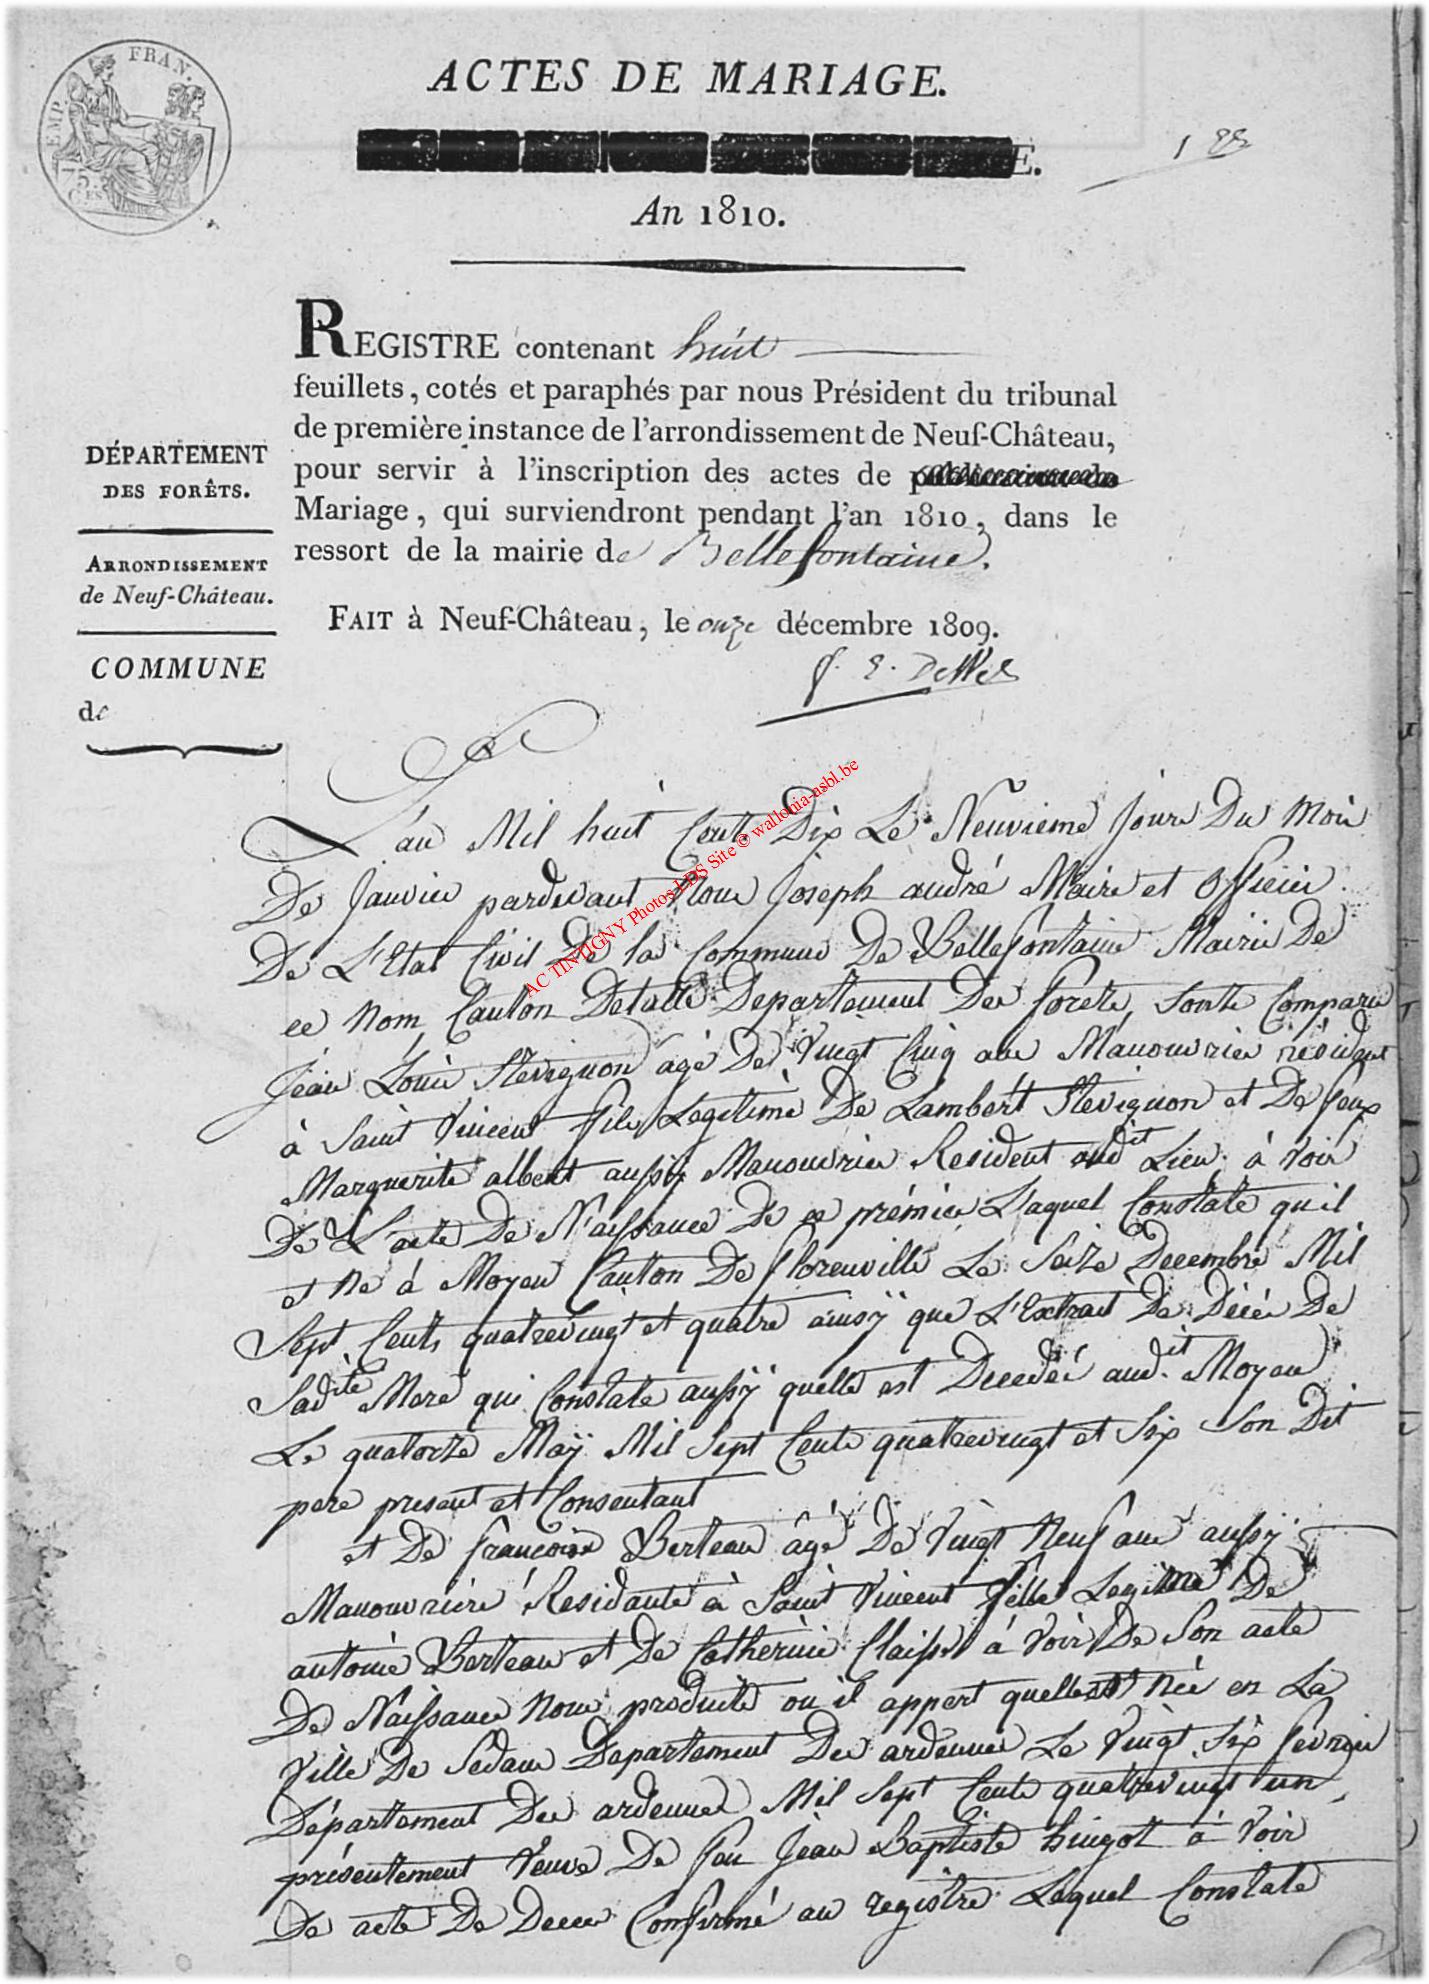 FRAN.
EMP.
75.
CES
ACTES DE MARIAGE.
E.
An 1810.
REGISTRE contenant huit
feuillets, cotés et paraphés par nous Président du tribunal
de première instance de l'arrondissement de Neuf-Château,
pour servir à l'inscription des actes de
Mariage, qui surviendront pendant l'an 1810, dans le
ressort de la mairie de Bellefontaine.
FAIT à Neuf-Château, le onze décembre 1809.
DÉPARTEMENT
DES FORÊTS.
ARRONDISSEMENT
de Neuf-Château.
COMMUNE
de
L'an Mil huit Cents Dix Le Neuvieme Jour Du Mois
De Janvier pardevant Nous Joseph andré Maire et officier
De L'Etat Civil De la Commune De Bellefontaine Mairie De
ce Nom, Canton Detalle Departement Des forets, sonts Comparu
Jean Louis Stevignon agé De Vingt Cinq ans Manouvrier résident
à Saint Vincent fils Legitime De Lambert Stevignon et De feux
Marguerite albert aussy Manouvrier Resident audit Lieu à voir
De L'acte De Naissance De ce prémier Laquel Constate quil
et Né à Moyen Canton De florenville Le Seize Decembre Mil
Sept Cents quatrevingt et quatre ainsÿ que L'Extrait De Décés De
Sadite Mere qui Constate aussÿ quelle est Decedéé audit Moyen
Le quatorze Maÿ Mil Sept Cents quatrevingt et Six Son Dit
pere present et Consentant
et De françoise Berteau âgé De Vingt Neuf ans aussÿ
Manouvriere Residante à Saint Vincent fille Legitime De
antoine Berteau et De Catherine Claisse à voir De Son acte
De Naissance Nous produite ou il appert quelle est Née en La
Ville De Sedan Departement Des ardennes Le Vingt Six fevrier
Département Des ardennes Mil Sept Cents quatrevingt un,
présentement Veuve De feu Jean Baptiste hingot à voir
De acte De Deces Confirmé au registre Lequel Constate
AC TINTIGNY Photos LDS Site © wallonia-asbl.be